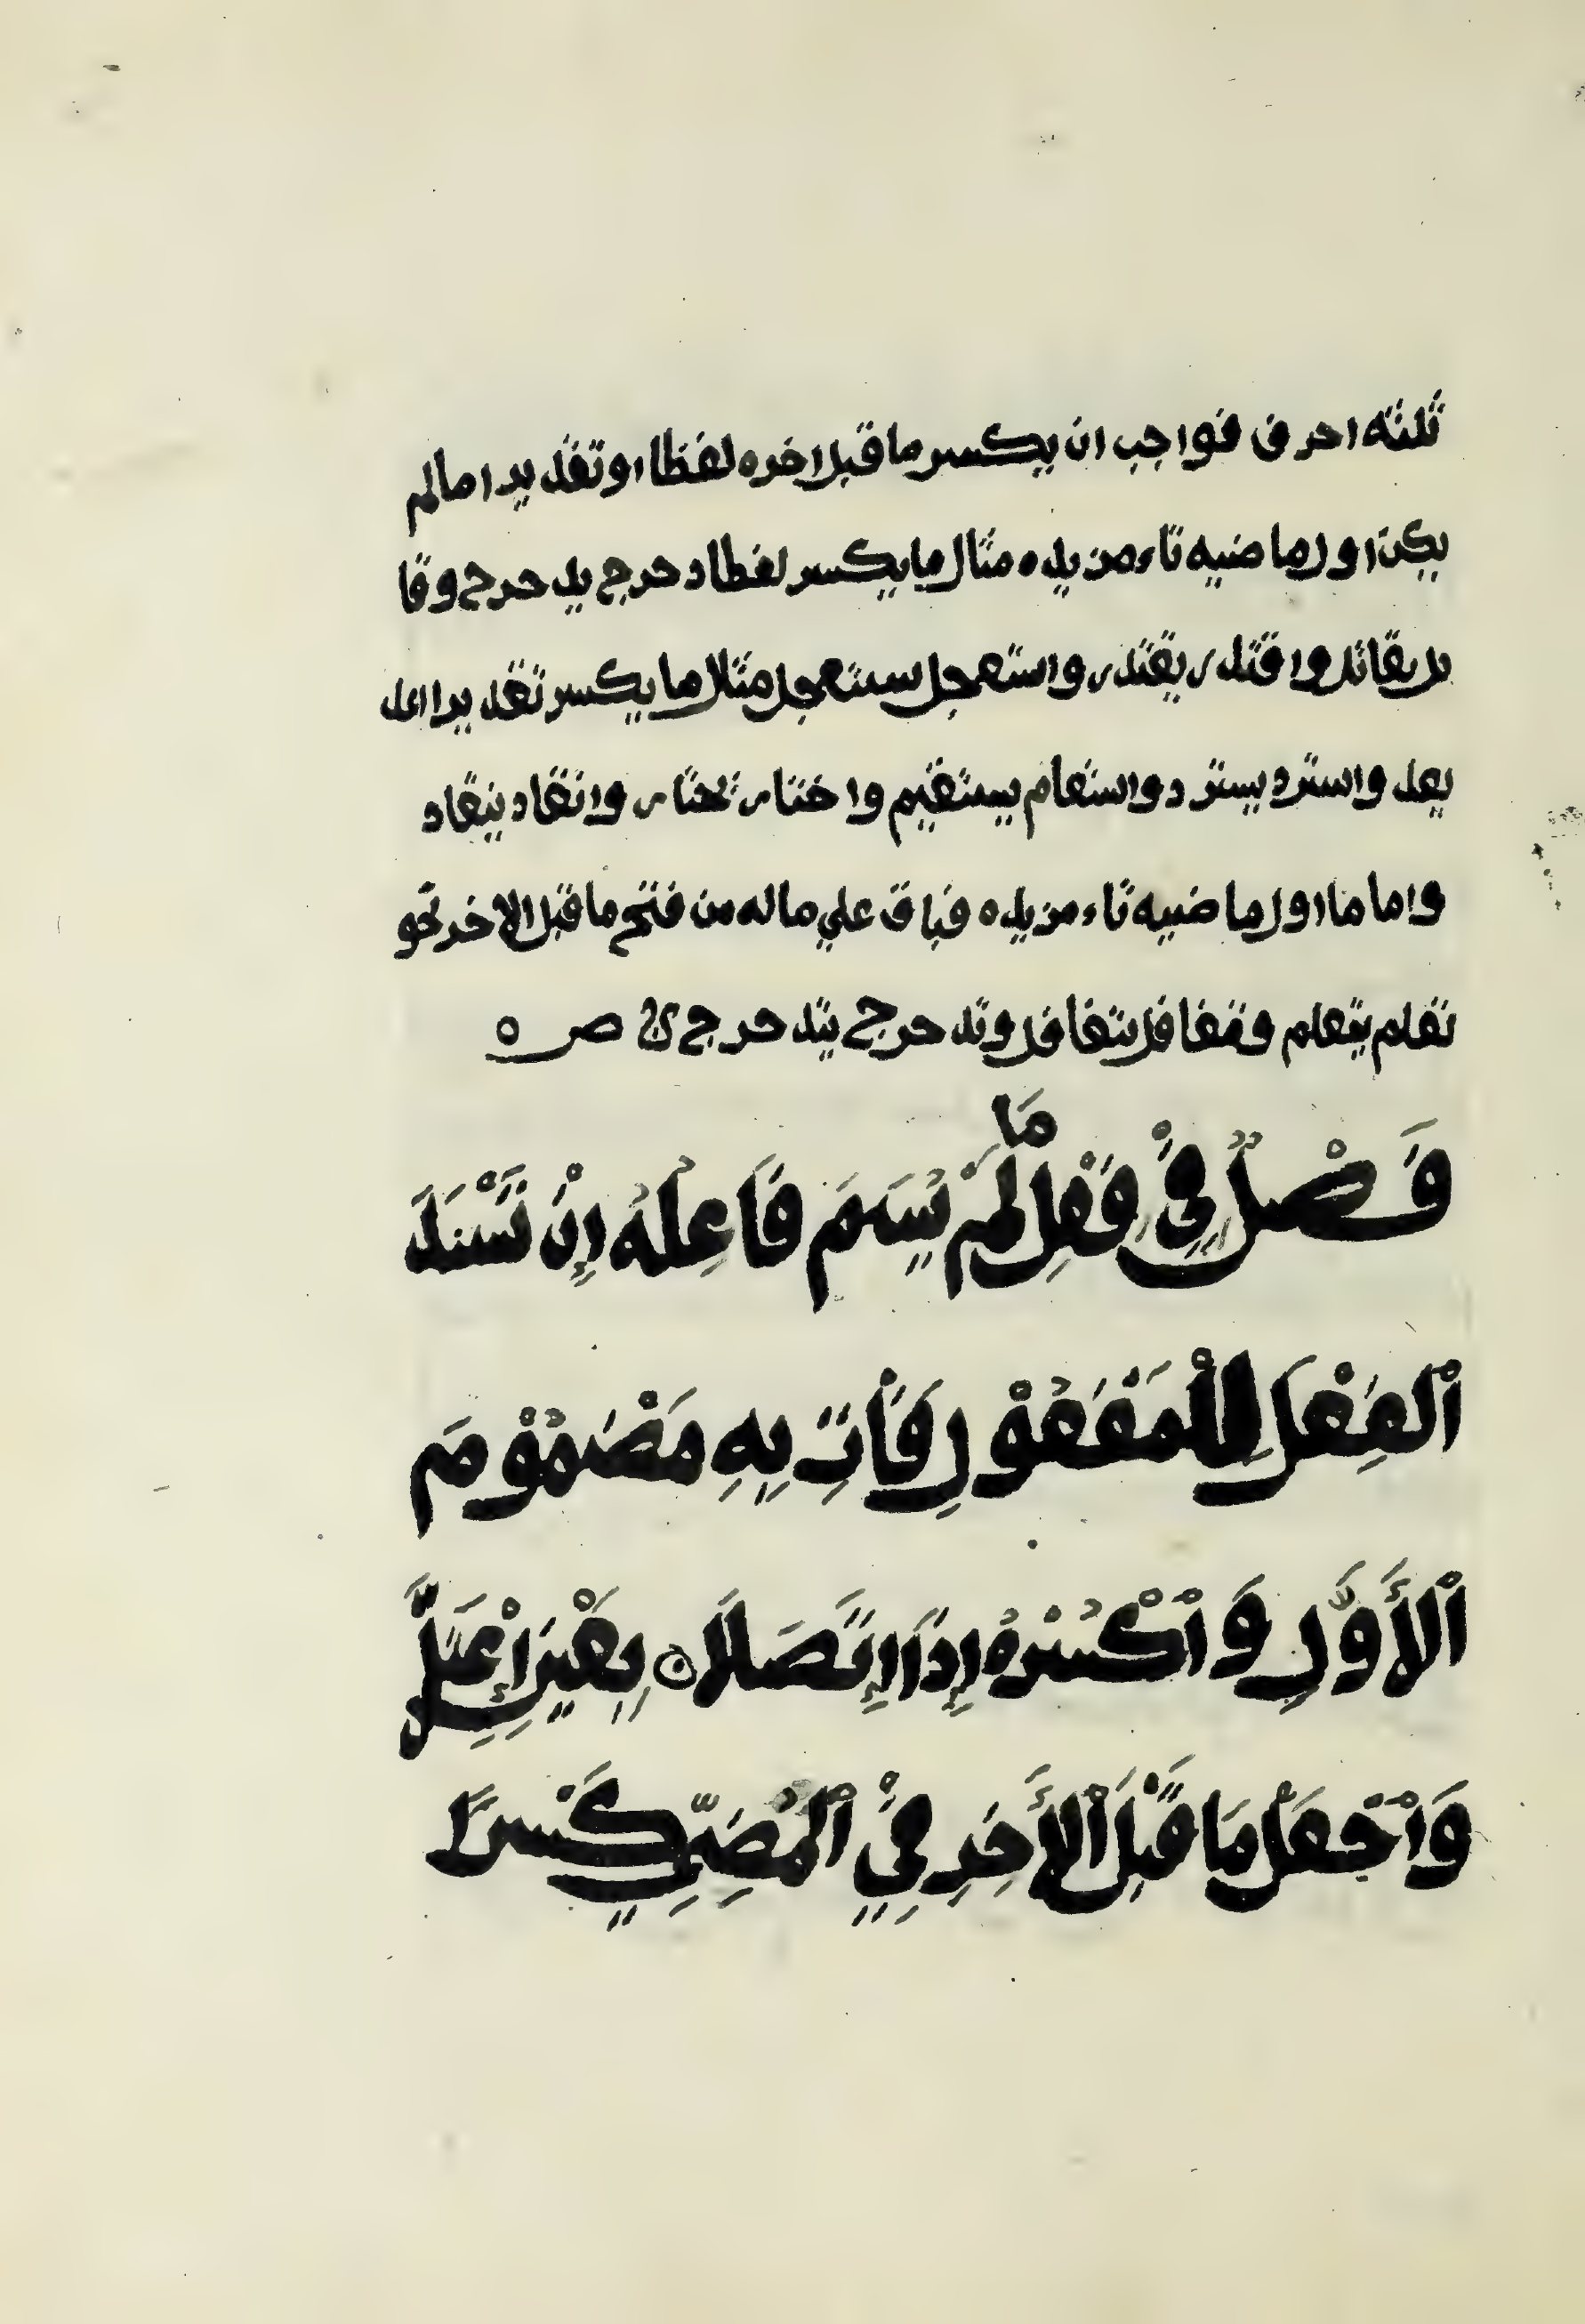 ثلثه احرف فواجب ان يكسر ما قبل اخره لفظا او تقديرا ما لم
يكن اول ماضيه تاء مزيده مثال ما يكسر لفظا دحرج يدحرج وقا
تل يقاتل واقتدر يقتدر واستعجل يستعجل مثال ما يكسر تقديرا اعل
يعل واسترد يسترد واستقام يستقيم واختار يختار وانقاد ينقاد
واما ما اول ماضيه تاء مزيده فباق علي ما له من فتح ما قبل الاخر نحو
تعلم يتعلم وتغافل يتغافل وتدحرج يتدحرج ص ٥
فَصْلٌ فِيْ فِعْلِ مَا لَمْ يُسَمَ فَاعِلُهُ إِنْ تُسْنِدَ
اْلفِعْلَ لِلْمَفْعُوْلِ فَأْتِ بِهِ مَضْمُوْمَ
اْلأَوَّلِ وَاْكْسُرْهُ إِذَا اِتَّصَلَا ۞ بِعَيْنٍ اِعْتَلَّ
وَاْجْعَلْ مَا قَبْلَ اْلأَخِرِ فِيْ اْلمُضِيِّ كَسْرًا